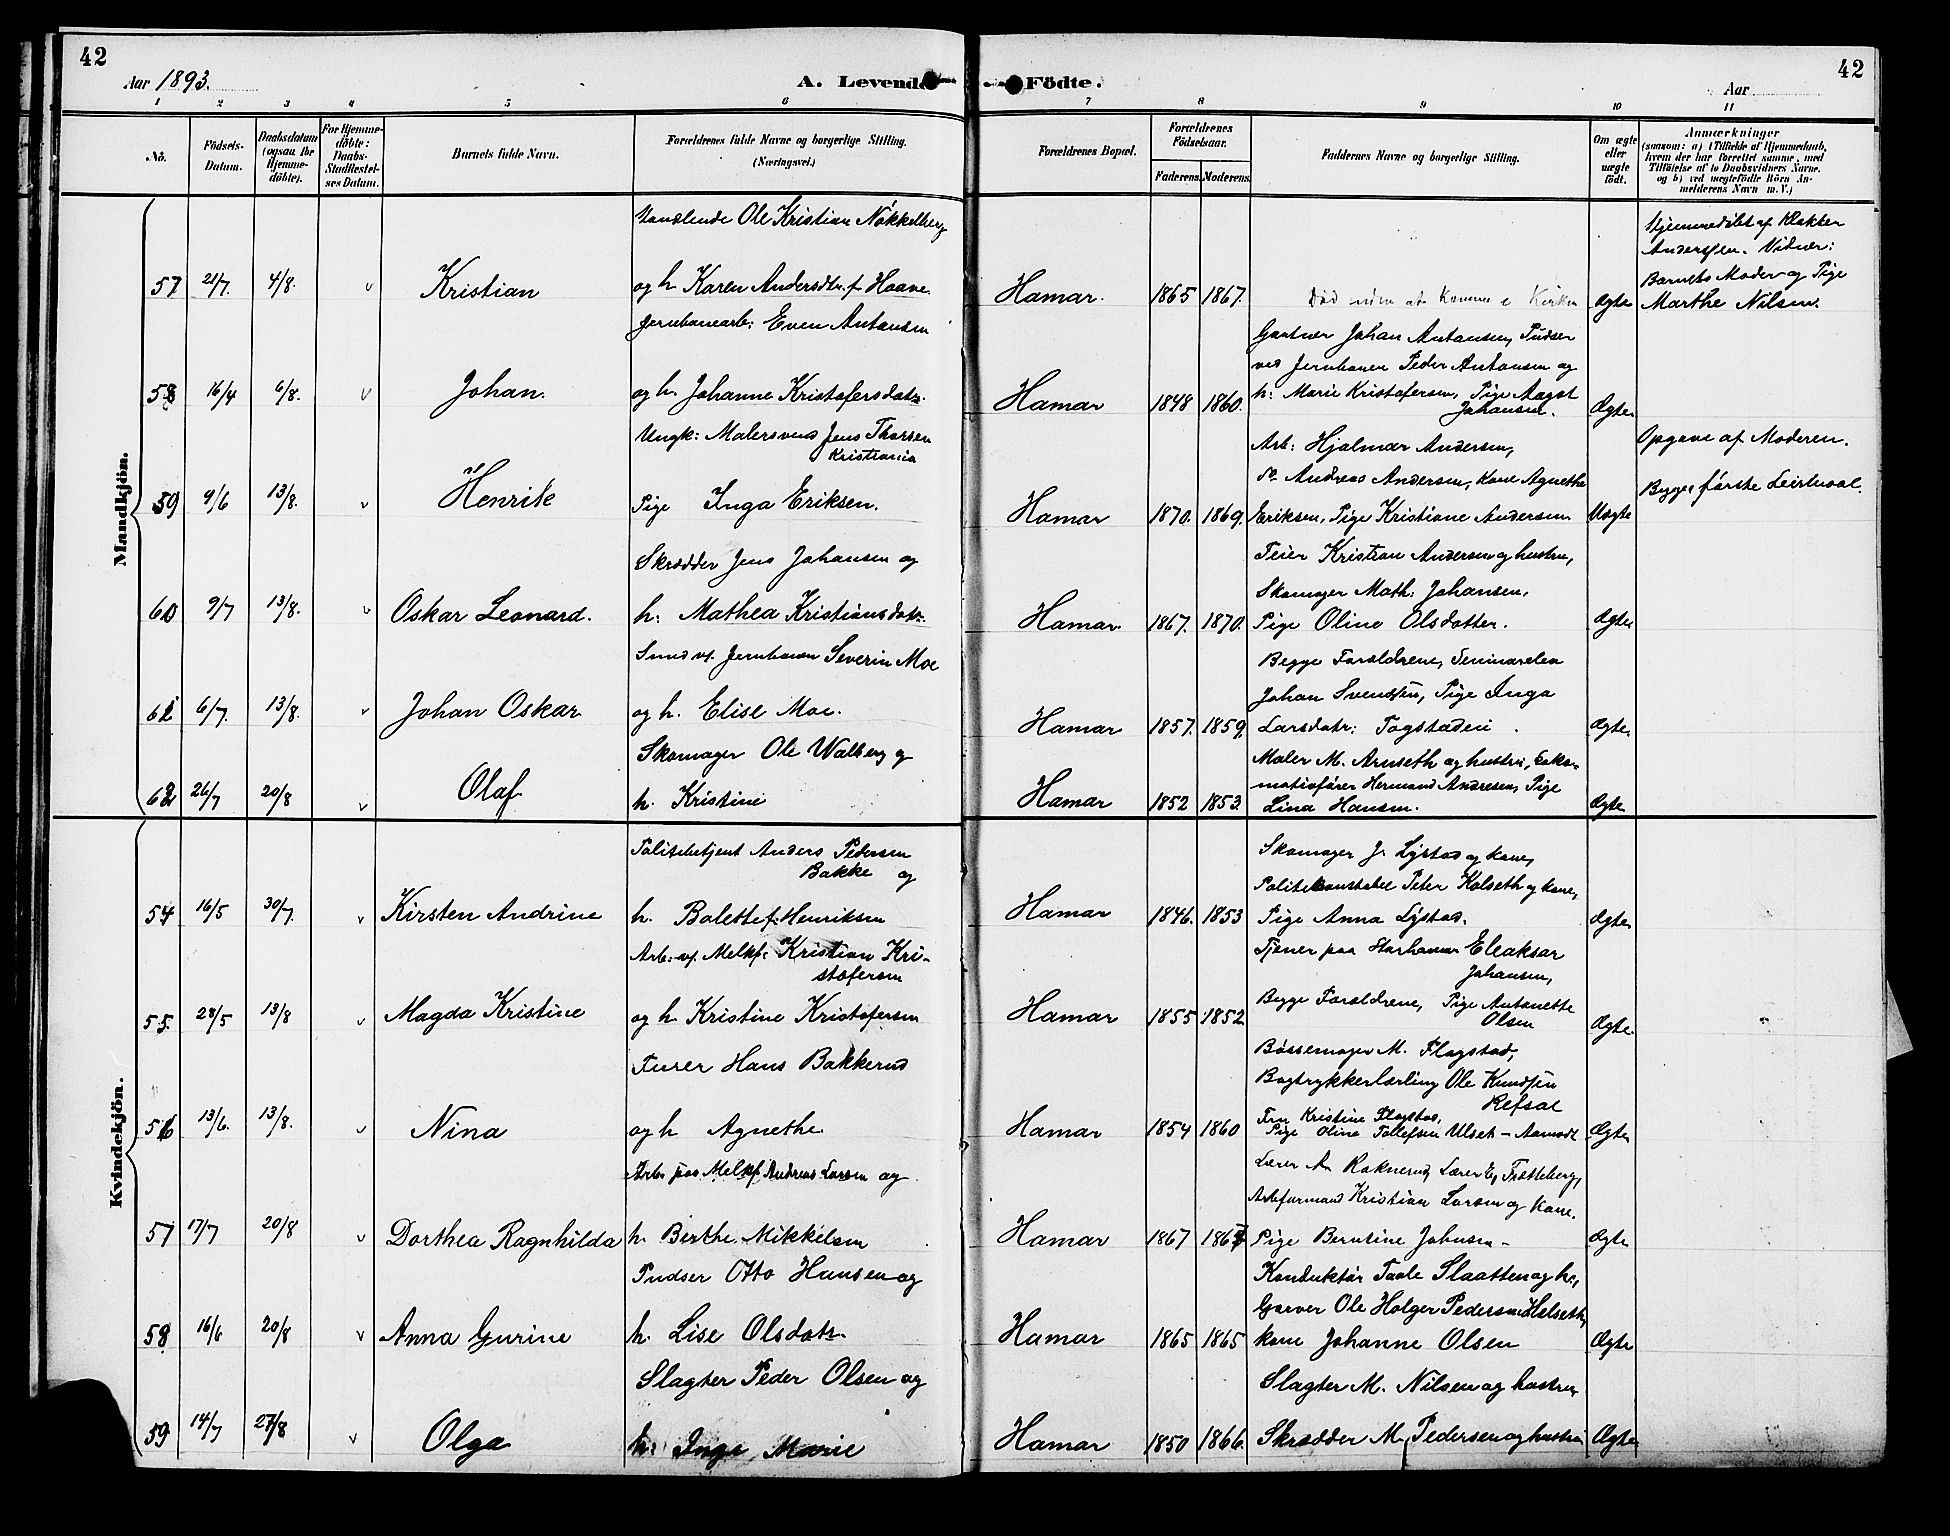 42
Aar 1893.
A. Levende
Födte.
Aar
42
1 2 3 4 5 6 7 8 9 10 11
No.
Födsels-Datum.
Daabsdatum (ogsaa for Hjemmedöbte).
For Hjemmedöbte: Daabs-Stadfæstelses Datum.
Barnets fulde Navn.
Forældrenes fulde Navne og borgerlige Stilling. (Næringsvei.)
Forældrenes Bopæl.
Forældrenes Födselsaar.
Faderens. Moderens.
Faddernes Navne og borgerlige Stilling.
Om ægte eller uægte födt.
Anmærkninger
(saasom: a) i Tilfælde af Hjemmedaab, hvem der har forrettet samme, med Tilföielse af to Daabsvidners Navne, og b) ved uægtefödte Börn Anmelderens Navn m. V.)
Mandkjön.
Handlende Ole Kristian Nökkelberg
57 21/7. 4/8. v Kristian og h. Karen Andersdtr. f. Haave. Hamar. 1865 1867. Död uden at komme i Kirken Ægte
Hjemmedöbt af Klokker
Anderssen. Vidner:
Barnets Moder og Pige
Marthe Nilsen.
Jernbanearb: Even Antonsen
58 16/4 6/8. v Johan. og h. Johanne Kristofersdatr. Hamar 1848 1860.
Gartner Johan Antonsen, Pudser
ved Jernbanen Peder Antonsen og
h: Marie Kristofersen, Pige Aagot
Johansen. Ægte
Ungk: Malersvend Jens Thorsen
Kristiania
59 9/6 13/8. v Henrik Pige Inga Eriksen. Hamar 1870. 1869.
Arb: Hjalmar Andersen,
Do Andreas Andersen, Kone Agnethe
Eriksen, Pige Kristiane Andersen Uægte
Opgave af Moderen.
Begges förste Leiermaal.
Skrædder Jens Johansen og
60 9/7 13/8. v Oskar Leonard. h: Mathea Kristiansdatr. Hamar. 1867. 1870.
Feier Kristian Andersen og hustru,
Skomager Math: Johansen,
Pige Oline Olsdatter. Ægte
Smed v. Jernbanen Severin Moe
61 6/7. 13/8. v Johan Oskar og h. Elise Moe. Hamar 1857. 1859.
Begge Forældrene, Seminarelev
Johan Svendsen, Pige Inga
Larsdatr: Togstadeie. Ægte
Skomager Ole Walberg og
62 26/7 20/8 v Olaf h. Kristine Hamar 1852 1853.
Maler M. Aruseth og hustru, Loko-
motivförer Herman Andresen, Pige
Lina Hansen. Ægte
Kvindekjön.
Politibetjent Anders Pedersen
Bakke og
54 16/5 30/7. v Kirsten Andrine h. Bolette f. Henriksen Hamar 1846. 1853
Skomager J. Lÿstad og kone,
Politikonstabel Peter Kolseth og kone,
Pige Anna Lÿstad. Ægte
Arb: v. Melkf: Kristian Kri-
stofersen
55. 28/5 13/8 v Magda Kristine og h. Kristine Kristofersen Hamar 1855 1852
Tjener paa Storhamar Eleaksar
Johansen,
Begge Forældrene, Pige Antonette
Olsen Ægte.
Furer Hans Bakkerud
56 13/6. 13/8. v Nina og h Agnethe Hamar 1854 1860
Bössemager M. Flagstad,
Bogtrykkerlærling Ole Knudsen
Refsal
Fru Kristine Flagstad,
Pige Olina Tollefsen Ulset - Aamodt Ægte
Arb. paa Melkf. Andreas Larsen og
57 17/7 20/8 v Dorthea Ragnhilda h. Birthe Mikkelsen Hamar 1867 1867
Lærer A. Raknerud, Lærer E. Trætteberg,
Arbformand Kristian Larsen og Kone.
Pige Berntine Johnsen - Ægte
Pudser Otto Hansen og
58 16/6 20/8 v Anna Gurine h. Lise Olsdatr Hamar 1865 1865
Konduktör Taale Slaatten og h.,
Garver Ole Holger Pedersen Helseth,
kone Johanne Olsen Ægte
Slagter Peder Olsen og
59 14/7 27/8 v Olga h: Inge Marie Hamar 1850 1866.
Slagter M. Nilsen og hustru
Skrædder M. Pedersen og hustru Ægte